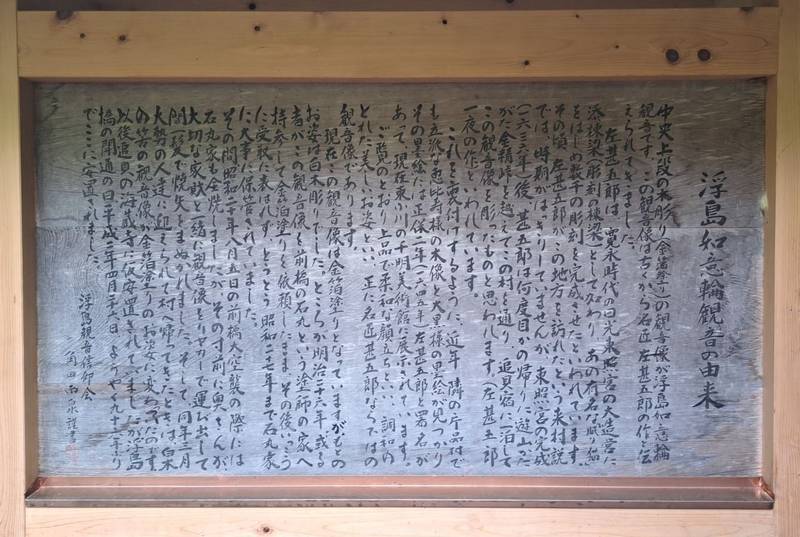 浮島如意輪観音の由来
中央上段の木彫り(金箔塗り)の観音像が浮島如意輪
観音です。この観音像は古くから名匠左甚五郎の作と伝
えられてきました。
左甚五郎は、寛永時代の日光東照宮の大造営に
添棟梁(彫刻の棟梁)として加わり、あの有名な眠り猫
をはじめ数千の彫刻を完成させたといわれています。
その頃、左甚五郎がこの地方を訪れたという来村説
では、時期がはっきりしていませんが、東照宮の完成
(一六三六年)後、甚五郎は何度目かの帰りに遊山がた
がた金精峠を越えてこの村を通り、追貝宿に一泊して
この観音像を彫ったものと思われます。(左甚五郎
一夜の作といわれています。
これを裏付けするように、近年、隣の片品村で
も立派な恵比寿様の木像と大黒様の墨絵が見つかり
その墨絵には正保二年(一六四五年)左甚五郎と署名が
あって、現在東小川の千明美術館に展示されています。
ご覧のとおり上品で柔和な顔立ちといい、調和の
とれた美しいお姿といい正に名匠甚五郎ならではの
観音像であります。
現在この観音像は金箔塗りとなっていますがもとの
お姿は白木彫りでした。ところが明治二十六年、或る
者がこの観音像を前橋の石丸という塗師の家へ
持参して金箔塗りを依頼したまま、その後いっこう
に受取に表はれず、とうとう昭和二十七年まで石丸家
に大事に保管されていました。
その間昭和二十年八月五日の前橋大空襲の際には
石丸家も全焼しましたが、その寸前に奥さんが
大切な家財と一緒に観音像をリヤカーで運び出して
間一髪で焼失をまぬがれました。そして、同年三月
大勢の人達に迎えられて村へ帰ってきたときは、白木
の筈の観音像が金箔塗りのお姿に変わってたのです。
以後追貝の海蔵寺に仮安置されていましたが浮島
橋の開通の日平成二年四月二十六日、ようやく九十六年ぶり
でここに安置されました。
浮島観音信仰会
角田南泉謹書